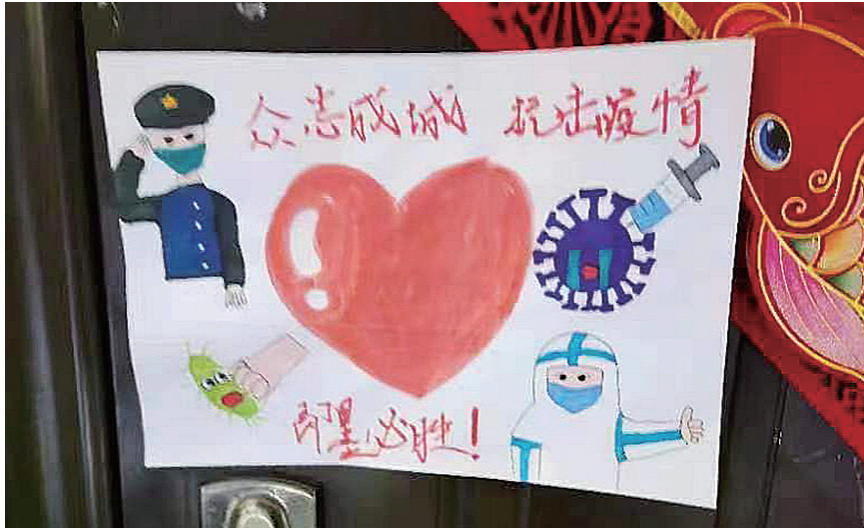 众志成城 抗击疫情
即墨必胜!